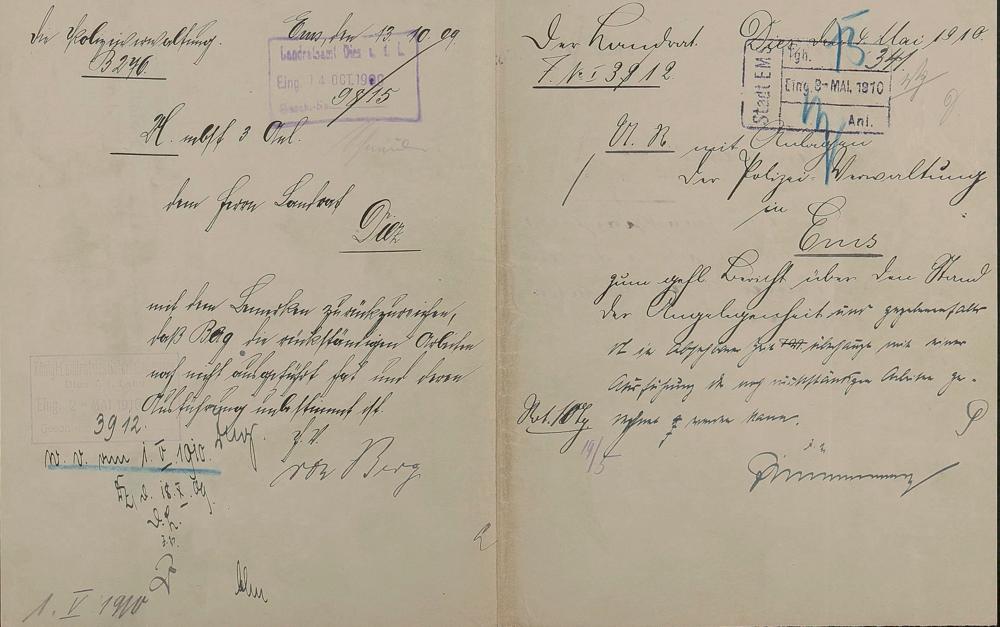 Die Polizeiverwaltung.
B 246.
Ems, den 13. 10. 09.
Landratsamt Diez a. d. L.
Eing. 14 OCT. 1909
9815
U. nebst 3 Anl.
dem Herrn Landrat
Diez
mit dem Bemerken zurückzureichen,
daß Berg die rückständigen Arbeiten
noch nicht ausgeführt hat und deren
Ausführung unbestimmt ist.
J. V.
Eing. 2 - MAI 1910
3912.
w. v. am 1. V. 1910.
Dz d. 18. X. 09.
D. L.
1. V 1910
Der Landrat.
J. No I 3912.
Diez, den 4. Mai 1910.
Stadt EMS
Tgb. 341
Eing. 8 - MAI. 1910
Anl.
U. R. mit Anlagen
der Polizei-Verwaltung
in
Ems
zum gefl. Bericht über den Stand
der Angelegenheit und gegebenenfalls
in absehbarer Zeit überhaupt mit einer
Ausführung der noch rückständigen Arbeiten ge-
rechnet werden kann.
Not. 10 Tg
19/5